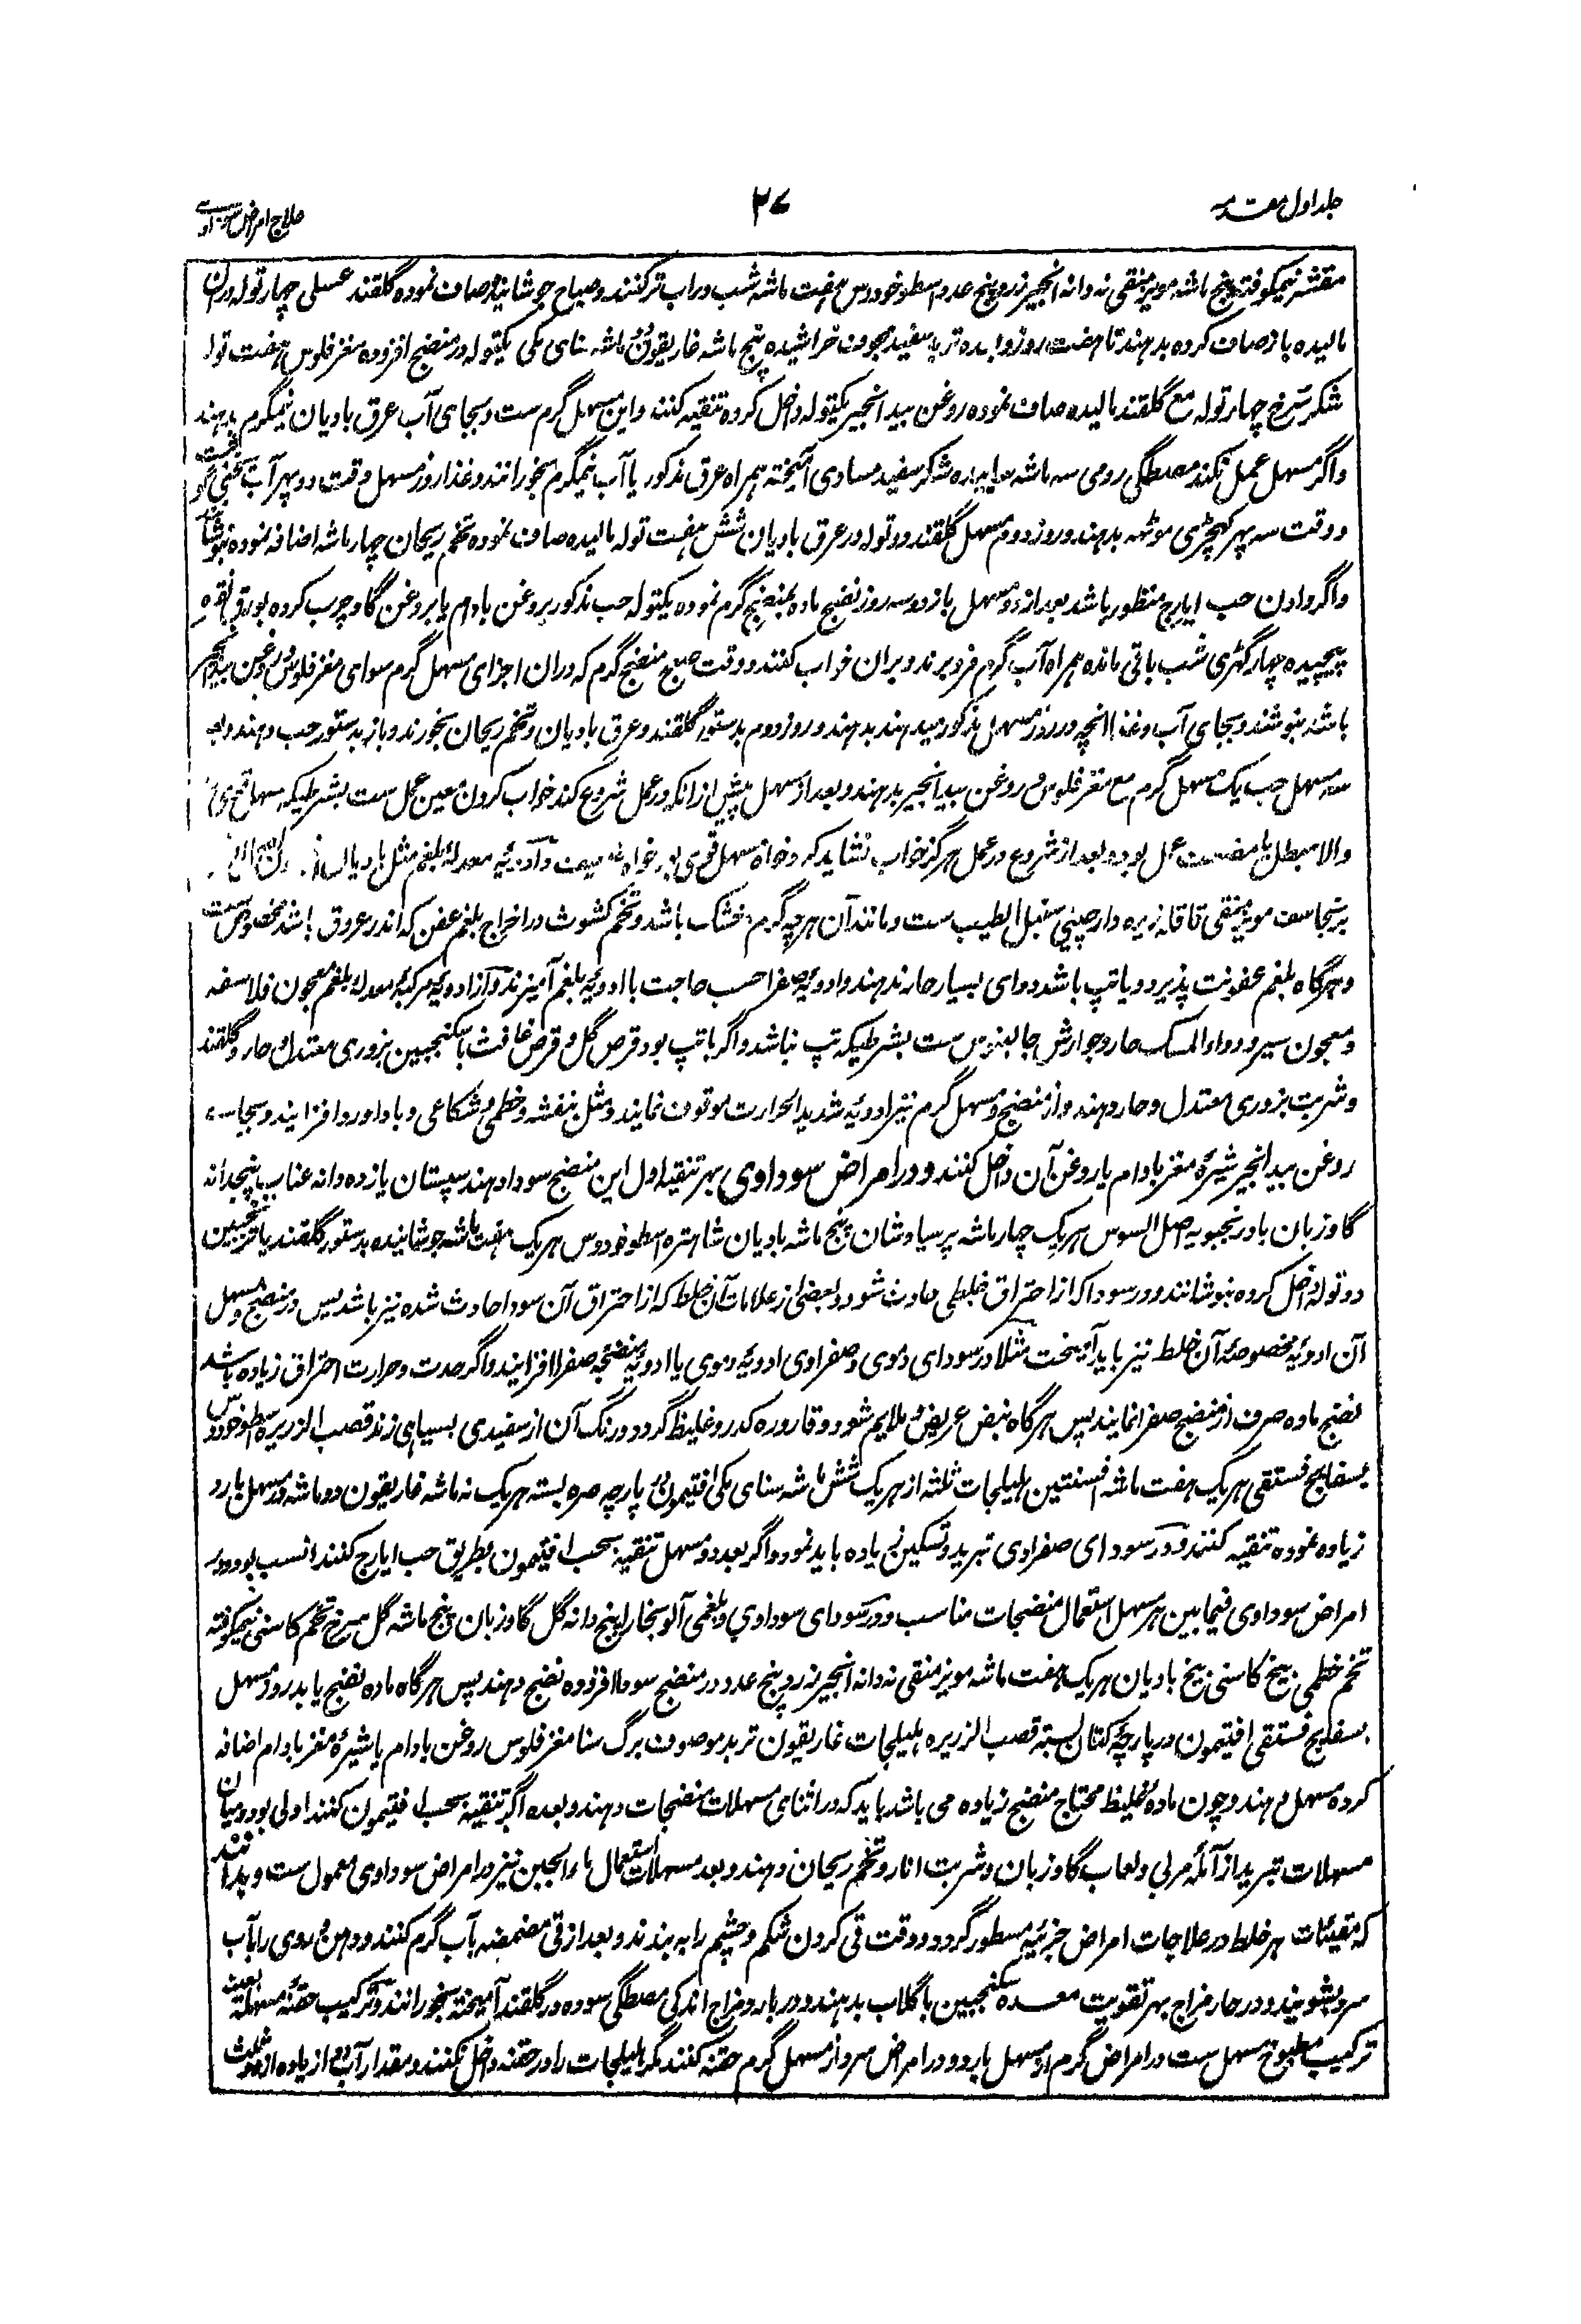 جلد اول مقدمه
۳۷
علاج امراض سوداوی
مقشر نیمکوفته پنج ماشه مویز منقی نه دانه انجیر زرد پنج عدد اسطوخودوس هفت ماشه شب در آب تر کنند و صباح جوشانیده صاف نموده گلقند عسلی چهار توله دران
مالیده باز صاف کرده بدهند تا هفت روز و بعده تربد سفید مجوف خراشیده پنج ماشه غاریقون ماشه سنای مکی یکتوله در منضج افزوده مغز فلوس هفت توله
شکر سرخ چهار توله مع گلقند مالیده صاف نموده روغن بید انجیر یکتوله داخل کرده تنقیه کنند و این مسهل گرم ست و بجای آب عرق بادیان نیمگرم بدهند
واگر مسهل عمل نکند مصطگی رومی سه ماشه شکر سفید مساوی آمیخته همراه عرق مذکور یا آب نیمگرم بخورانند و غذا روز مسهل وقت دوپهر آب یخنی
و وقت سه پهر کهچڑی مونهه بدهند و روز دوم مسهل گلقند دو توله در عرق بادیان شش هفت توله مالیده صاف نموده تخم ریحان چهار ماشه اضافه نموده بنوشانند
واگر دادن حب ایارج منظور باشد بعد از دو مسهل باز دو سه روز نضج ماده بمنضج گرم نموده یکتوله حب مذکور بروغن بادام یا بروغن گاو چرب کرده بورق نقره
پیچیده چهار گهڑی شب باقی مانده همراه آب گرم فرو برند و بران خواب کنند و وقت صبح منضج گرم که دران اجزای مسهل گرم سوای مغز فلوس و روغن بید انجیر
باشد بنوشند و بجای آب و غذا انچه در روز مسهل مذکور میدهند بدهند و روز دوم بدستور گلقند و عرق بادیان و تخم ریحان بخورند و باز بدستور حب دهند و بعد
سه مسهل حب یک مسهل گرم مع مغز فلوس و روغن بید انجیر بدهند و بعد از مسهل پیش از انکه در عمل شروع کند خواب کردن معین عمل ست بشرطیکه مسهل قوی
والا مبطل یا مضعف عمل بوده بعد از شروع در عمل هرگز خواب نشاید کرد خواه مسهل قوی بود خواه ضعیف و ادویه معدله بلغم مثل بادیان
برنجاسف مویز منقی قاقله زیره دارچینی سنبل الطیب ست و مانند آن هرچه گرم و خشک باشد و تخم کشوث در اخراج بلغم عفن که اندر عروق باشد مخصوص ست
و هرگاه بلغم عفونت پذیرد و یا تپ باشد دوای بسیار حار ندهند و ادویه صفرا حسب حاجت با ادویه بلغم آمیزند و از ادویه مرکبه معدله بلغم معجون فلاسفه
و معجون سیر و دواء المسک حار و جوارش جالینوس ست بشرطیکه تپ نباشد واگر با تپ بود قرص گل و قرص غافث با سکنجبین بزوری معتدل و حار و گلقند
و شربت بزوری معتدل و حار دهند و از منضج و مسهل گرم نیز ادویه شدید الحرارت موقوف نمایند و مثل بنفشه و خطمی و شکاعی و باداورد افزایند و بجای
روغن بید انجیر شیره مغز بادام یا روغن آن داخل کنند و در امراض سوداوی بهر تنقیه اول این منضج سودا دهند سپستان یازده دانه عناب پنجدانه
گاوزبان بادرنجبویه اصل السوس هریک چهار ماشه پرسیاوشان پنج ماشه بادیان شاهتره اسطوخودوس هریک هفت ماشه جوشانیده بدستور گلقند یا ترنجبین
دو توله داخل کرده بنوشانند و در سودا که از احتراق خلطی حادث شود و بعضی از علامات آن خلط که از احتراق آن سودا حادث شده نیز باشد پس در منضج و مسهل
آن ادویه مخصوصه آن خلط نیز باید آمیخت مثلا در سودای دموی و صفراوی ادویه دموی یا ادویه منضجه صفرا افزایند واگر حدت و حرارت احتراق زیاده باشد
نضج ماده صرف از منضج صفرا نمایند پس هرگاه نبض عریض و ملایم شود و قاروره کدر و غلیظ گردد و رنگ آن از سفیدی بسیاهی زند قصب الزریره اسطوخودوس
بسفایج فستقی هریک هفت ماشه افسنتین هلیلجات ثلثه از هریک شش ماشه سنای مکی افتیمون در پارچه صره بسته هریک نه ماشه غاریقون دو ماشه در مسهل بارد
زیاده نموده تنقیه کنند و در سودای صفراوی تبرید و تسکین زیاده باید نمود و اگر بعد دو مسهل تنقیه بحب افتیمون بطریق حب ایارج کنند انسب بود و در
امراض سوداوی فیمابین هر مسهل استعمال منضجات مناسب و در سودای سوداوی و بلغمی آلو بخارا پنج دانه گل گاوزبان پنج ماشه گل سرخ تخم کاسنی نیمکوفته
تخم خطمی بیخ کاسنی بیخ بادیان هریک هفت ماشه مویز منقی نه دانه انجیر زرد پنج عدد در منضج سودا افزوده نضج دهند پس هرگاه ماده نضج یابد در مسهل
بسفایج فستقی افتیمون در پارچه کتان بسته قصب الزریره هلیلجات غاریقون تربد موصوف برگ سنا مغز فلوس روغن بادام یا شیره مغز بادام اضافه
کرده مسهل دهند و چون ماده غلیظ محتاج منضج زیاده می باشد باید که در اثنای مسهلات منضجات دهند و بعده اگر تنقیه بحب افتیمون کنند اولی بود و میان
مسهلات تبرید از آمله مربی و لعاب گاوزبان و شربت انار و تخم ریحان دهند و بعد مسهلات استعمال ماء الجبن نیز در امراض سوداوی معمول ست و بدانند
که مقیئات هر خلط در علاجات امراض جزئیه مسطور گردد و وقت قی کردن شکم و چشم را به بندند و بعد از قی مضمضه بآب گرم کنند و دهن و روی را بآب
سرد بشویند و در حار مزاج بهر تقویت معده سکنجبین با گلاب بدهند و در بارد مزاج اندکی مصطگی سوده در گلقند آمیخته بخورانند و ترکیب حقنه مسهله بعینه
ترکیب مطبوخ مسهل ست در امراض گرم از مسهل بارد و در امراض سرد از مسهل گرم حقنه کنند مگر هلیلجات را در حقنه داخل نکنند و مقدار آب دوا زیاده از ثلث